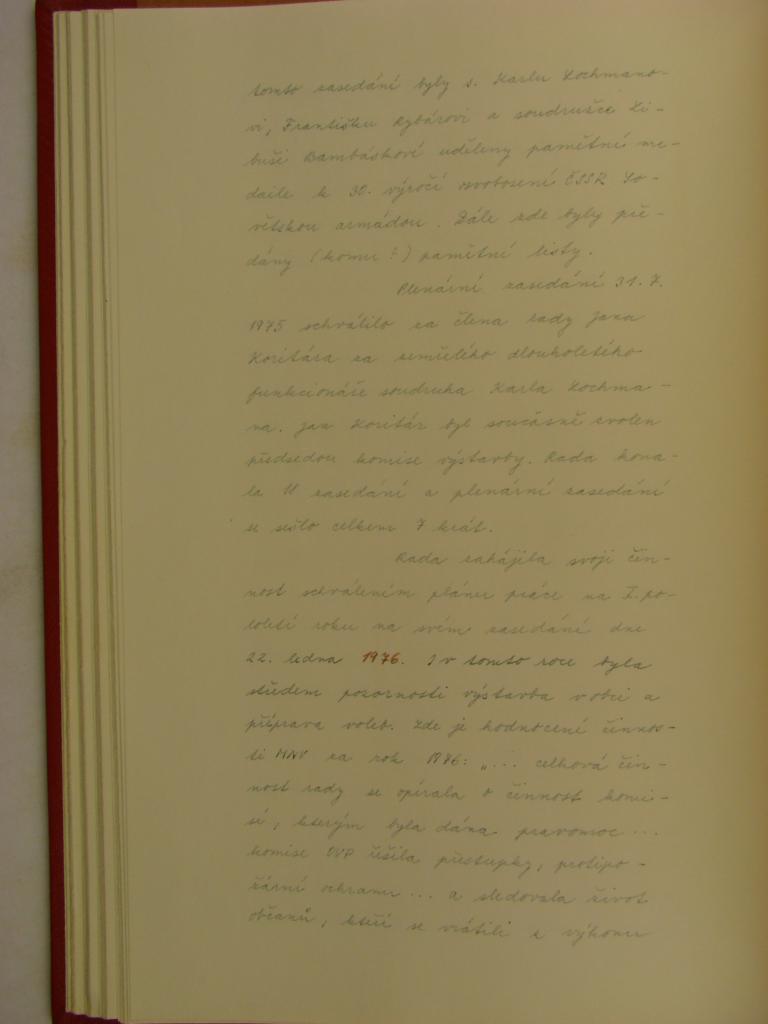 tomto zasedání byly s. Karlu Lochmano-
vi, Františku Rybárovi a soudružce Li-
buši Bambáskové uděleny pamětní me-
daile k 30. výročí osvobození ČSSR So-
větskou armádou. Dále zde byly pře-
dány (komu?) pamětní listy.
Plenární zasedání 31. 7.
1975 schválilo za člena rady Jana
Koritára za zemřelého dlouholetého
funkcionáře soudruha Karla Lochma-
na. Jan Koritár byl současně zvolen
předsedou komise výstavby. Rada kona-
la 11 zasedání a plenární zasedání
se sešlo celkem 7 krát.
Rada zahájila svoji čin-
nost schválením plánu práce na I. po-
loletí roku na svém zasedání dne
22. ledna 1976. I v tomto roce byla
středem pozornosti výstavba v obci a
příprava voleb. Zde je hodnocení činnos-
ti MNV za rok 1976: „... celková čin-
nost rady se opírala o činnost komi-
sí, kterým byla dána pravomoc ...
komise OVP řešila přestupky, protipo-
žární ochranu ... a sledovala život
občanů, kteří se vrátili z výkonu